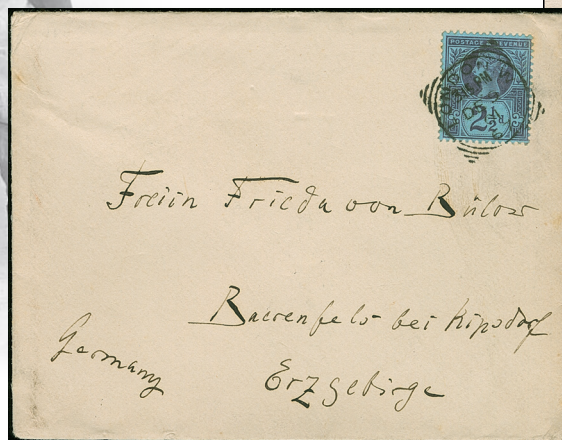 POSTAGE & REVENUE
2½d
Freiin Frieda von Bülow
Baerenfels bei Kipsdorf
Germany
Erzgebirge